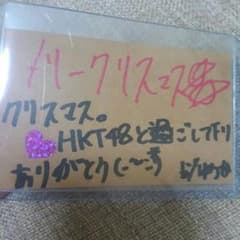 メリークリスマス
クリスマス。
HKT48と過ごして下り
ありがとう(-~-)